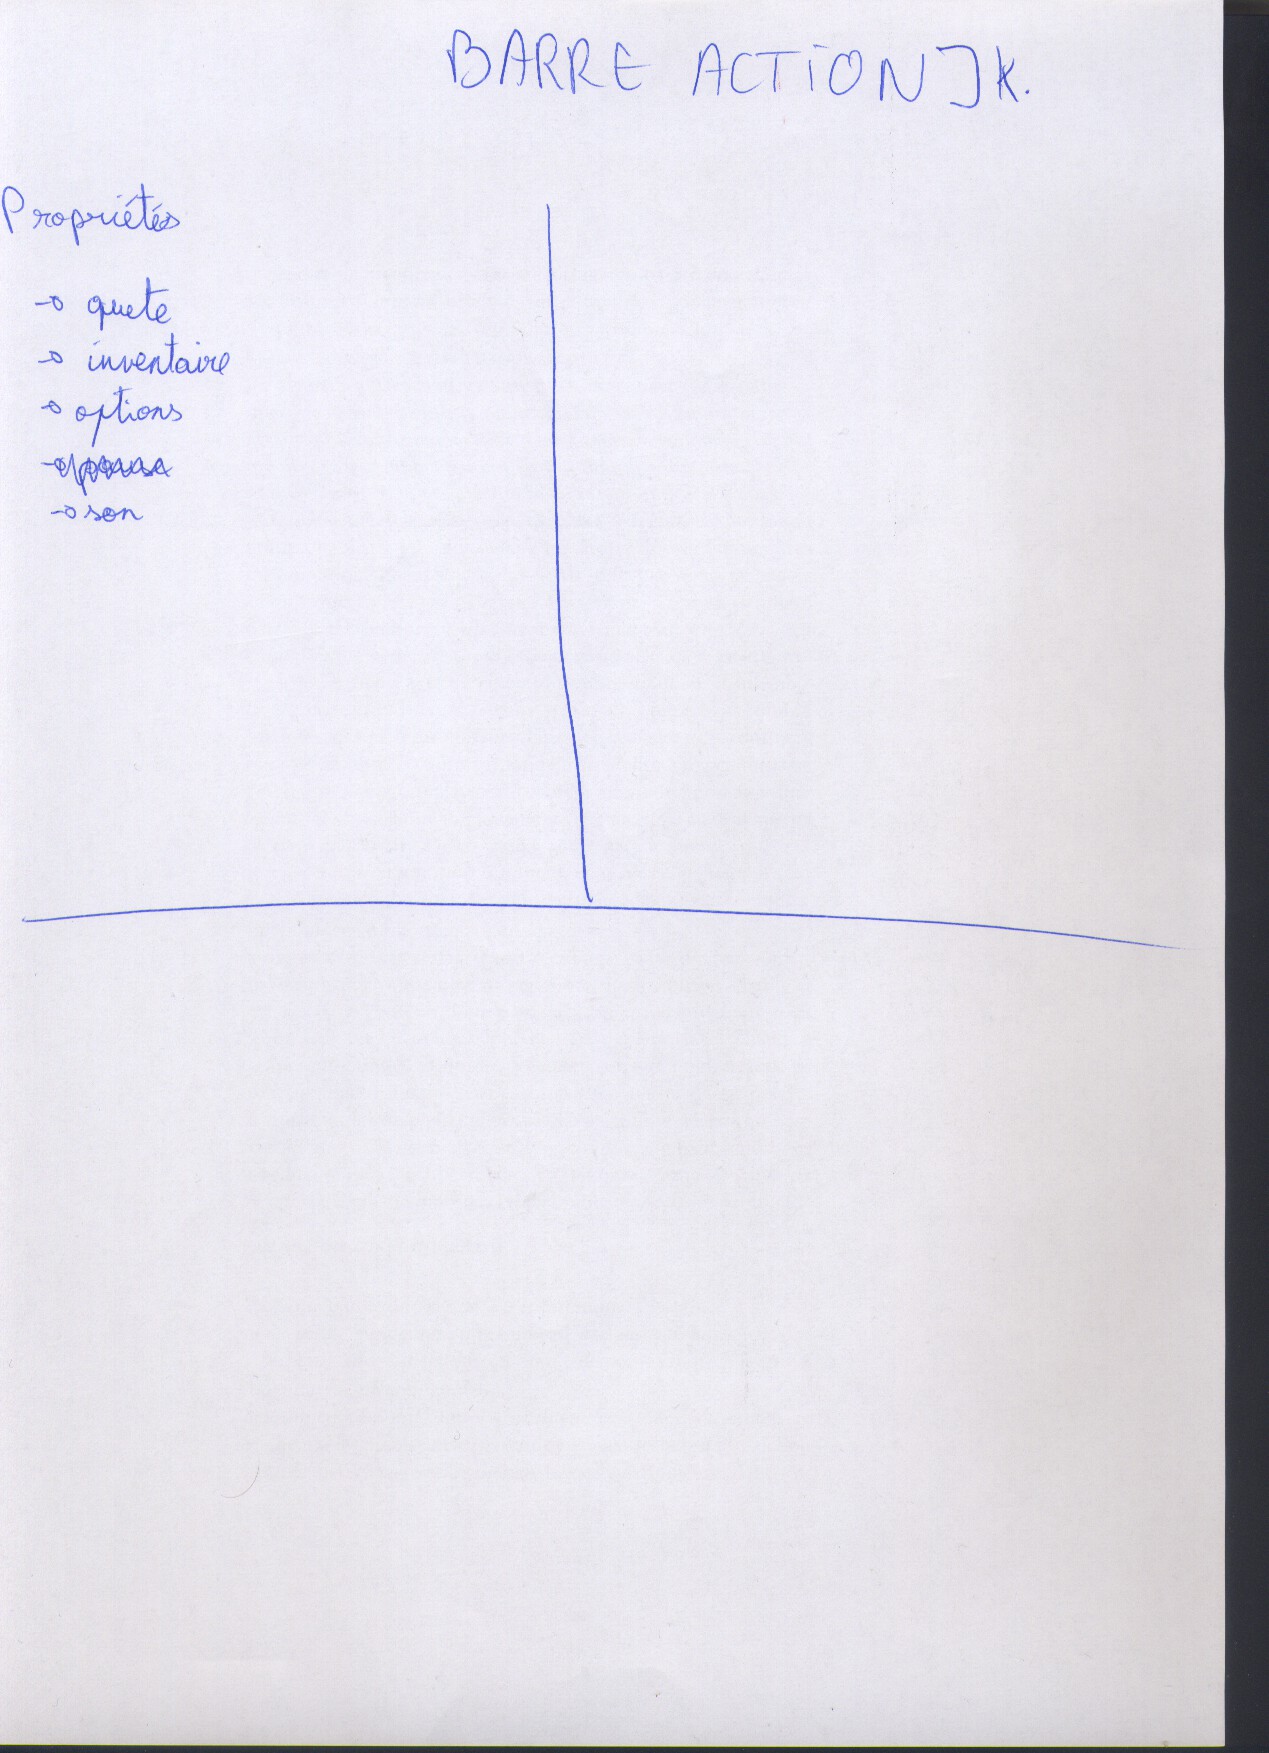 BARRE ACTION JK.
Propriétés
→ quete
→ inventaire
→ options
→ pause
→ son